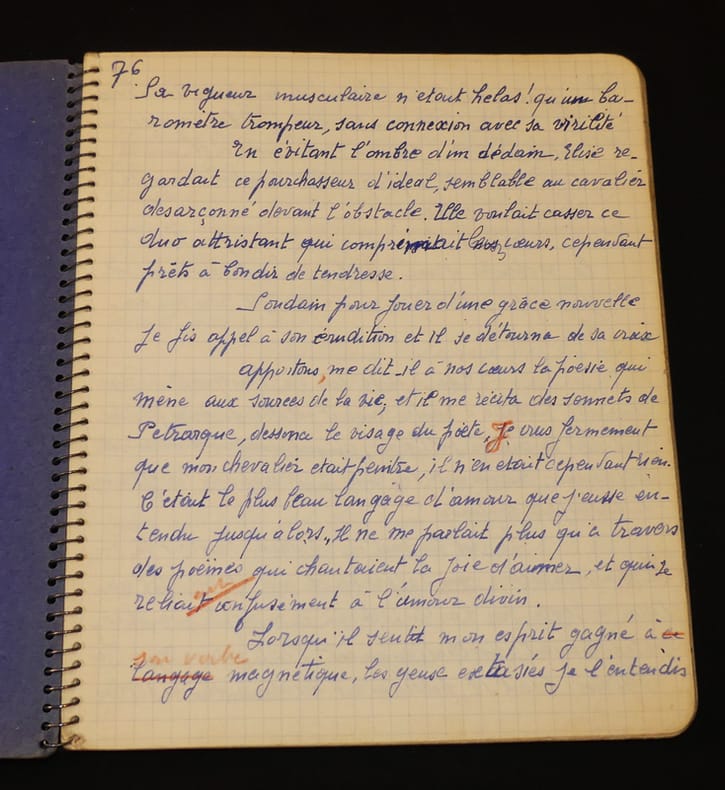 76
Sa vigueur musculaire n'etait helas! qu'un ba-
romètre trompeur, sans connexion avec sa virilité
En évitant l'ombre d'un dédain, Elise re-
gardait ce pourchasseur d'ideal, semblable au cavalier
desarçonné devant l'obstacle. Elle voulait casser ce
duo attristant qui comprimait cœurs, cependant
prêts à bondir de tendresse.
Soudain pour jouer d'une grâce nouvelle
je fis appel à son érudition et il se détourna de sa
apportons, me dit-il à nos cœurs la poesie qui
mène aux sources de la vie, et il me récita des sonnets de
Petrarque, dessona le visage du poète, Je crus fermement
que mon chevalier etait peintre, il n'en etait cependant rien.
C'était le plus beau langage d'amour que j'eusse en-
tendu jusqu'alors, Il ne me parlait plus qu'a travers
des poèmes qui chantaient la joie d'aimer, et qui se
reliait confusément à l'amour divin.
Lorsqu'il sentit mon esprit gagné à ce
son verbe
langage magnétique, les yeux extasiés je l'entendis